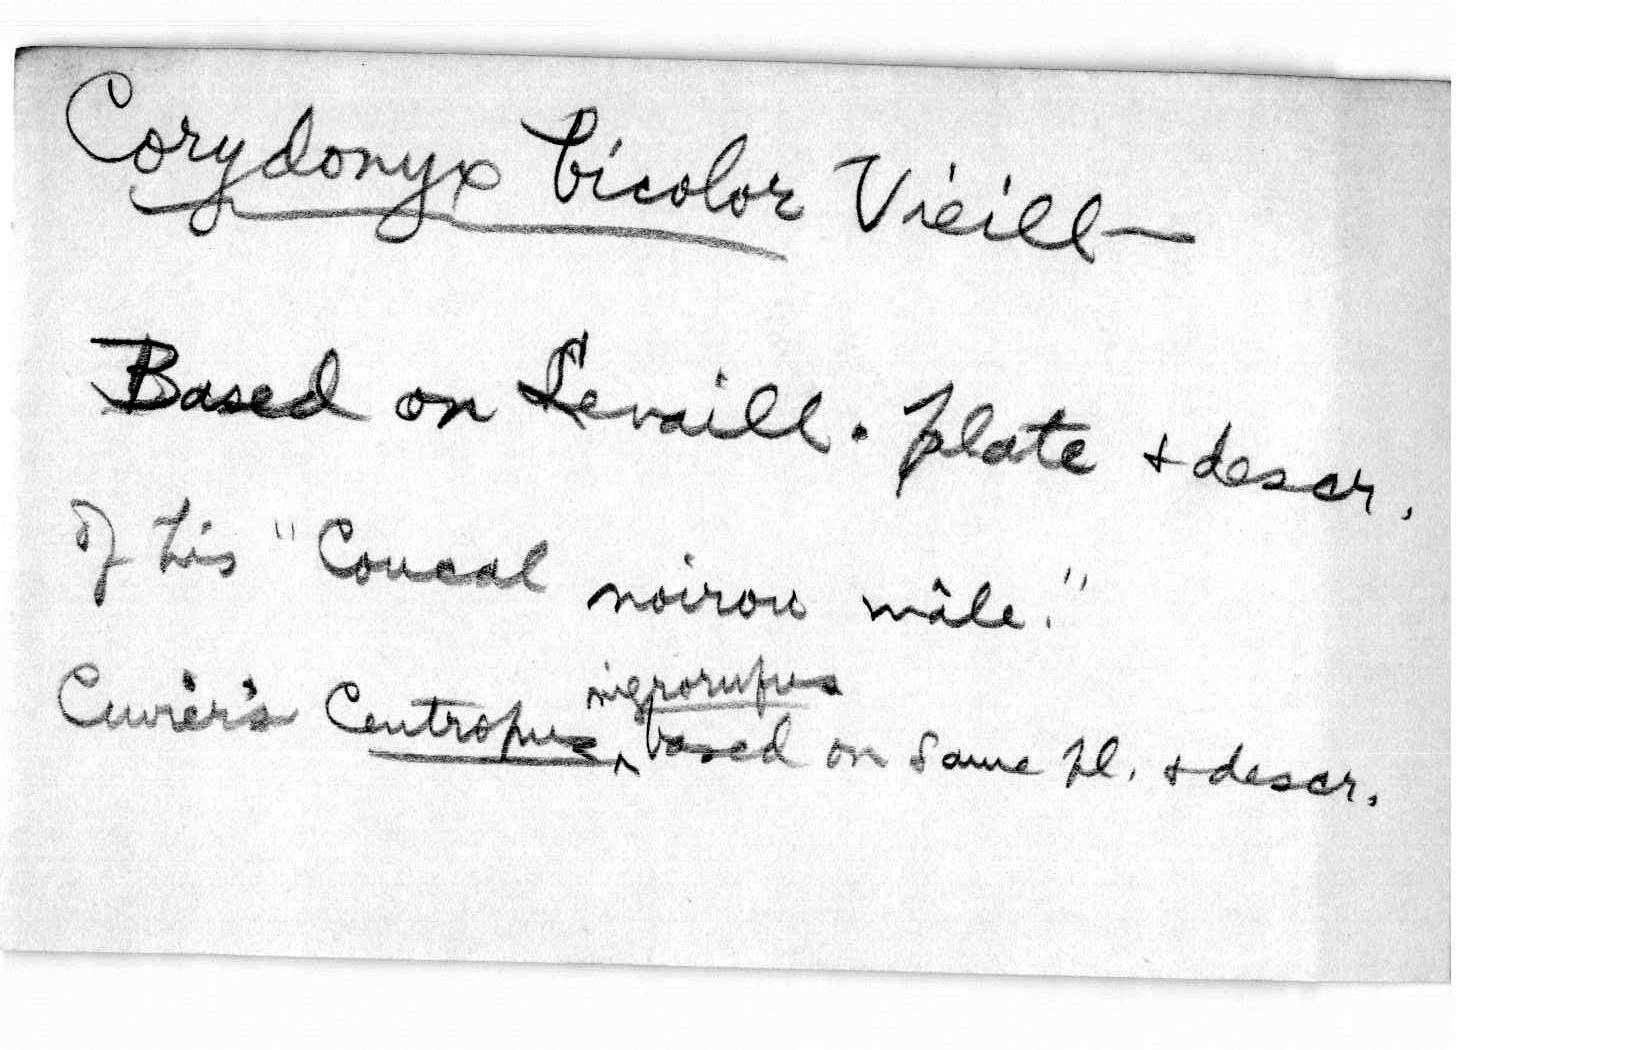 Corydonyx bicolor Vieill—
Based on Levaill. plate + descr.
of his "Coucal noirou mâle."
Cuvier's Centropus nigrorufus based on same pl. + descr.